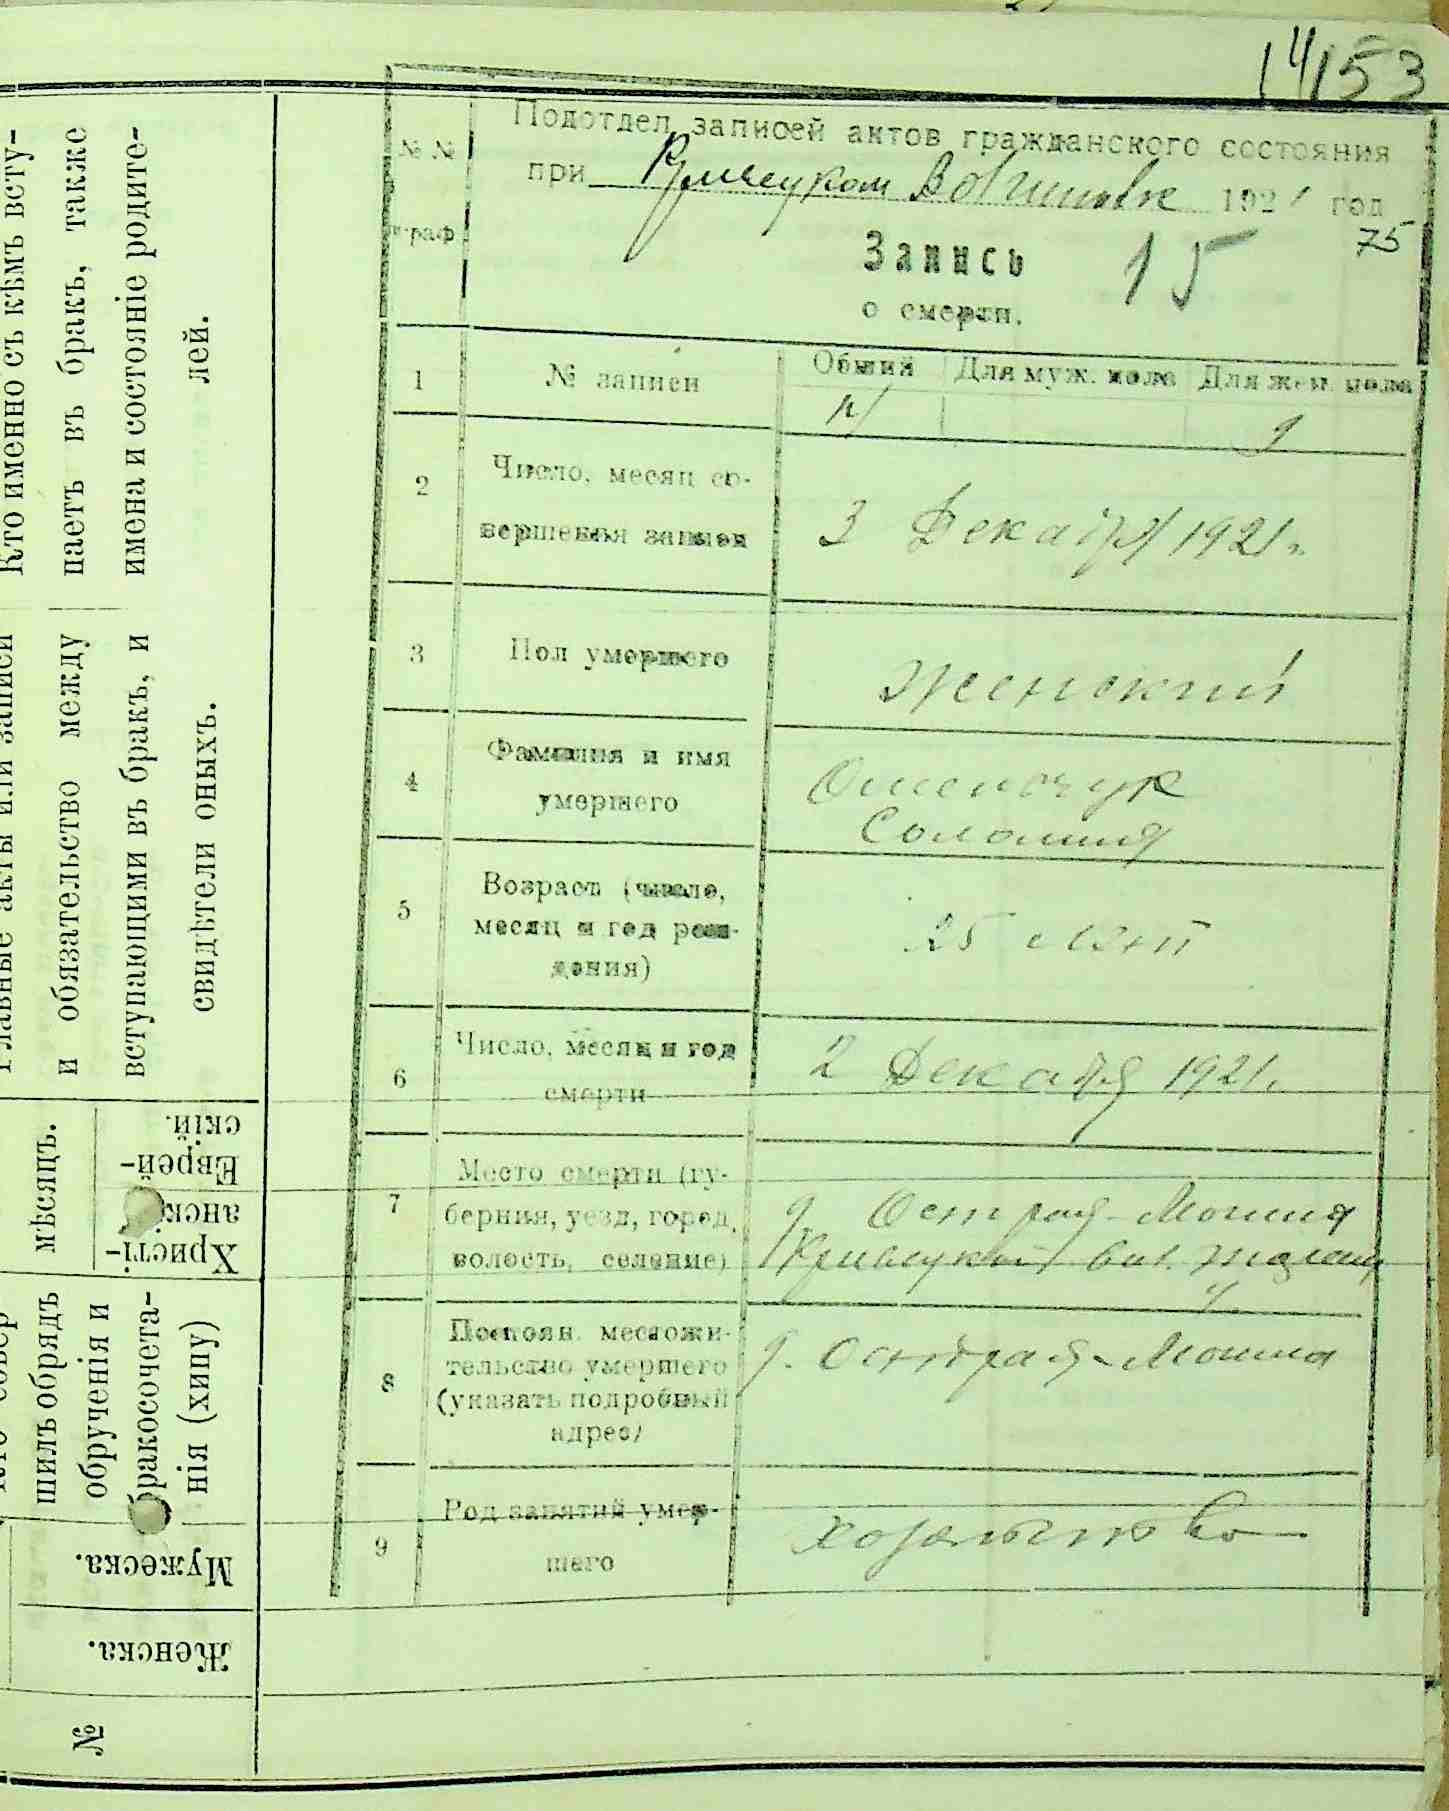 14153
Подотдел записей актов гражданского состояния
при 1921 год
75
№ № граф
Запись 15
о смерти.
1 № записи Общий Для муж. пола Для жен. пола
9
2 Число, месяц со-
вершения записи
3 Декабря 1921 г.
3 Пол умершего
Женский
4 Фамилия и имя
умершего
Соломия
5 Возраст (число,
месяц и год рож-
дения)
25 лет
6 Число, месяц и год
смерти
2 Декабря 1921 г.
7 Место смерти (гу-
берния, уезд, город,
волость, селение)
д. Острая-Могила
вол.
8 Постоян. местожи-
тельство умершего
(указать подробный
адрес)
д. Острая-Могила
9 Род занятий умер-
шего
Кто именно съ кѣмъ всту-
паетъ въ бракъ, также
имена и состояніе родите-
лей.
Главные акты или записи
и обязательство между
вступающими въ бракъ, и
свидѣтели оныхъ.
мѣсяцъ.
Христі-
анск
Еврей-
скій.
шилъ обрядъ
обрученія и
бракосочета-
нія (хипу)
Мужеска.
Женска.
№